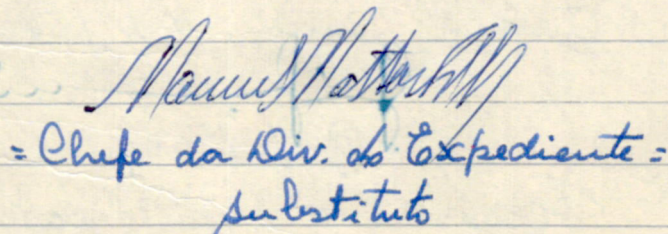 Manuel
= Chefe da Div. do Expediente =
substituto